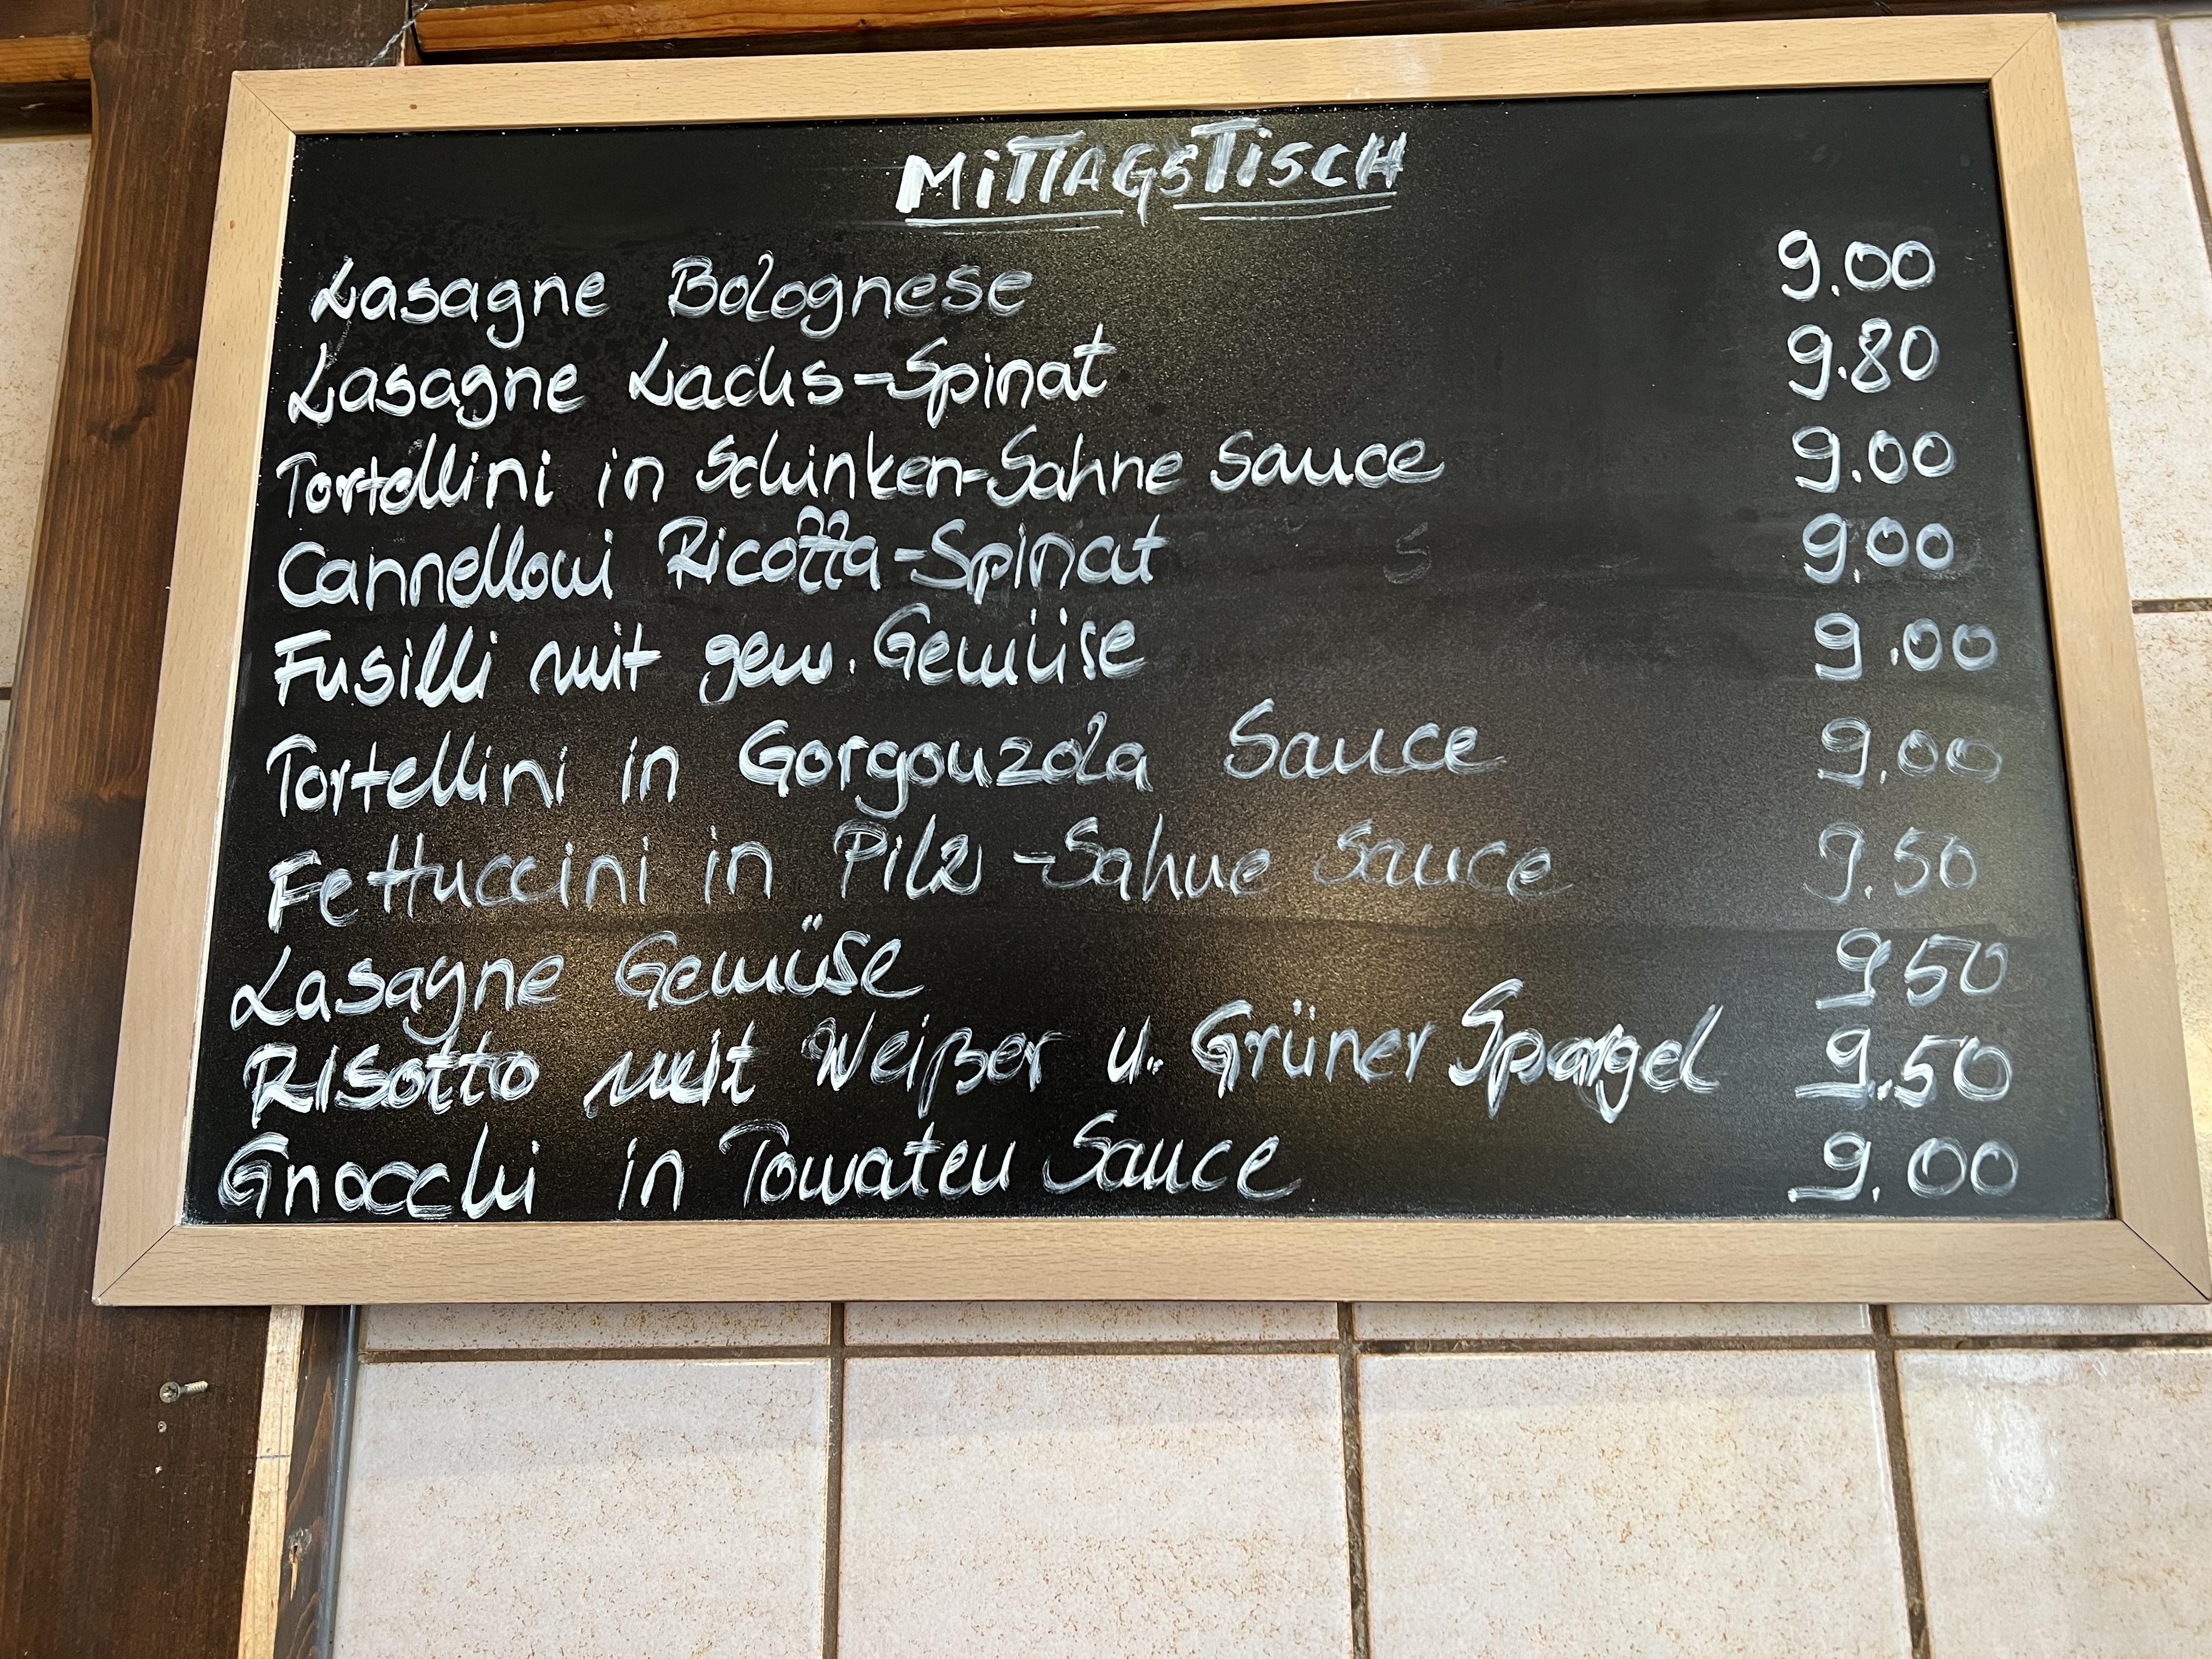 MiTTAGSTiSCH
Lasagne Bolognese 9.00
Lasagne Lachs-Spinat 9.80
Tortellini in Schinken-Sahne Sauce 9.00
Cannelloni Ricotta-Spinat 9.00
Fusilli mit gem. Gemüse 9.00
Tortellini in Gorgonzola Sauce 9.00
Fettuccini in Pilz-Sahne Sauce 9.50
Lasagne Gemüse 9.50
Risotto mit Weißer u. Grüner Spargel 9.50
Gnocchi in Tomaten Sauce 9.00